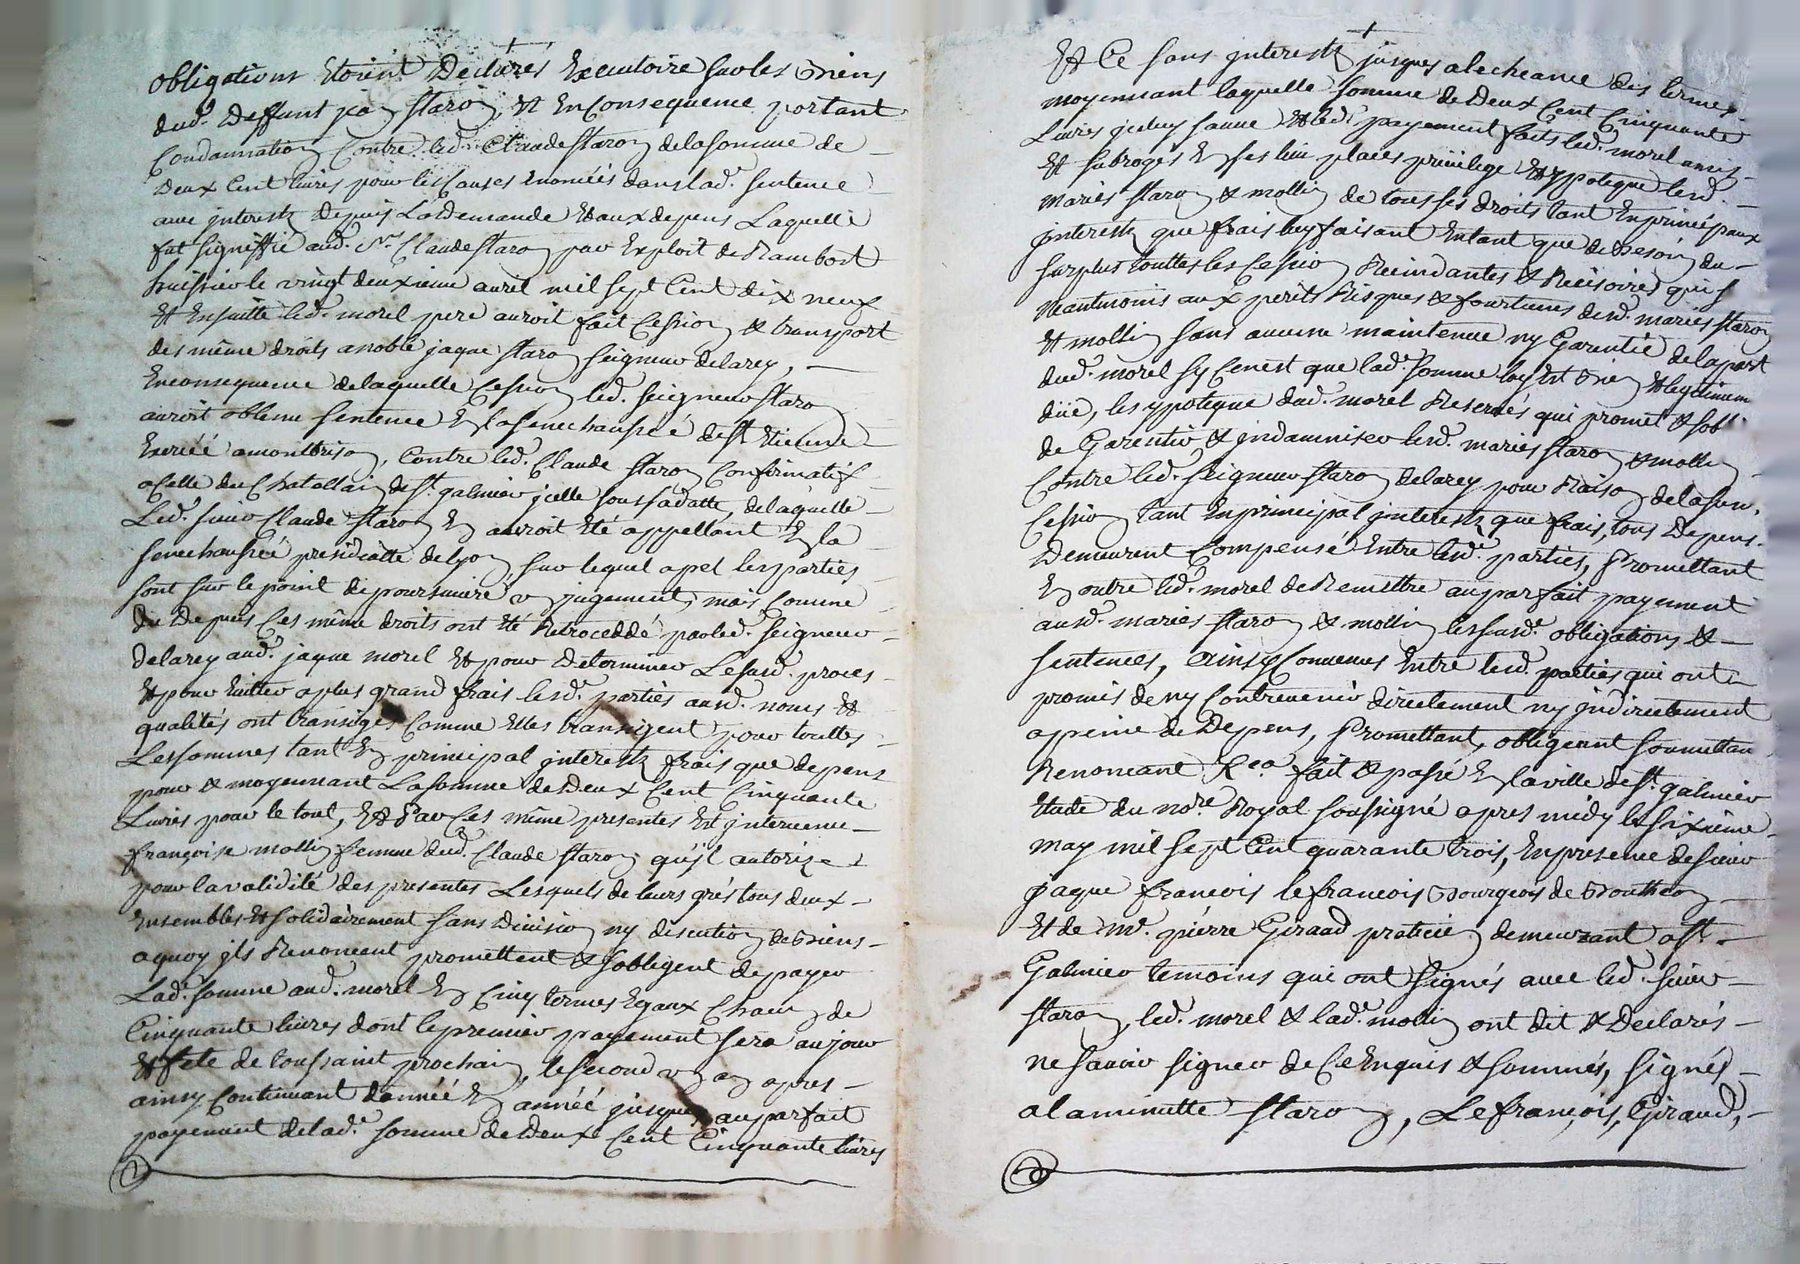 obligations Etoient Declarés Executoire sur les Biens
dud. Deffunt jea staron, Et En Consequence portant
Condamnation Contre led. Claude staron dela somme de
Deux Cent livres pour les Causes Enoncéés dans lad. sentence
avec jnterests Depuis La Demande Et aux depens Laquelle
fut signiffié aud. Sr. Claude staron par Exploit de Rambort
huissier le vingt deuxieme avril mil sept Cent dix neuf
Et Ensuitte led. morel pere auroit fait Cession & transport
des même droits a noble jaque staron seigneur delarey,
En consequence de laquelle Cession led. seigneur staron
auroit obtenu sentence En la senechausséé de st. Etienne
Exercéé a montbrison, Contre led. Claude staron Confirmatif
a Celle du Chatellain de st. galmier jcelle sous sa datte, de laquelle
Led. sieur Claude staron En auroit Eté appellant En la
senechausséé presidialle de lyon sur lequel apel les parties
sont sur le point de poursuivre un jugement, mais Comme
du Depuis Ces même droits ont Eté Retroceddé par led. seigneur
delarey aud. jaque morel Et pour Determiner Le susd. proces
Et pour Eviter a plus grand frais lesd. parties ausd. noms Et
qualités ont transigés Comme Elles transigent pour touttes
Les sommes tant En principal jnterests frais que depens
pour & moyennant La somme de Deux Cent Cinquante
Livres pour le tout, Et Par Ces même presentes Est jntervenue
françoise mollin femme dud. Claude staron qu'jl autorize
pour la validité des presentes Lesquels de leurs grés tous deux
Ensembles Et solidairement sans Division ny discution de Biens
a quoy jls Renoncent promettent & sobligent de payer
Lad. somme aud. morel En Cinq termes Egaux Chacun de
Cinquante livres dont le premier payement sera au jour
Et fete de toussaint prochain, le second un an apres
ainsy Continuant d'annéé En annéé jusques au parfait
payement de lad. somme de Deux Cent Cinquante livres
Et Ce sans jnterests jusques a lecheance des termes
moyennant laquelle somme de Deux Cent Cinquante
Livres Et led. payement faits led. morel a mis
Et subrogés En ses lieu places privilege & ypoteque lesd.
mariés staron & mollin de tous ses droits tant En principaux
jnterests que frais leur faisant Entant que de Besoin du
surplus touttes les Cession Recindantes & Recisoires quis
aux perils Risques & fourtunes desd. mariés staron
Et mollin sans aucune maintenue ny Garentie de la part
dud. morel sy Cenest que lad. somme luy Est Bien & legitimem
düe, les ypoteque dud. morel Reservés qui promet & sobl.
de Garentir & jndamniser lesd. mariés staron & mollin
Contre led. seigneur staron delarey pour Raison de la
Cession tant En principal jnterests que frais, tous Depens
Demeurent Compensé Entre lesd. parties, Promettant
En outre led. morel de Remettre au parfait payement
ausd. mariés staron & mollin les susd. obligations &
sentences, ainsy Convenus Entre lesd. parties qui ont
promis de ny Contrevenir directement ny jndirectement
a peine de Depens, Promettant, obligeant soumettan
Renoncant &ca fait & passé En la ville de st. galmier
Etude du nore. Royal soussigné apres midy le sixieme
may mil sept Cent quarante trois, En presence de sieur
jaque francois lefrancois Bourgeois de Boutheon
Et de me. pierre Giraud praticien demeurant a st.
Galmier temoins qui ont signés avec led. sieur
staron, led. morel & lad. mollin ont dit & Declarés
ne savoir signer de Ce Enquis & sommés, signés
a la minutte staron, Lefrançois, Giraud,